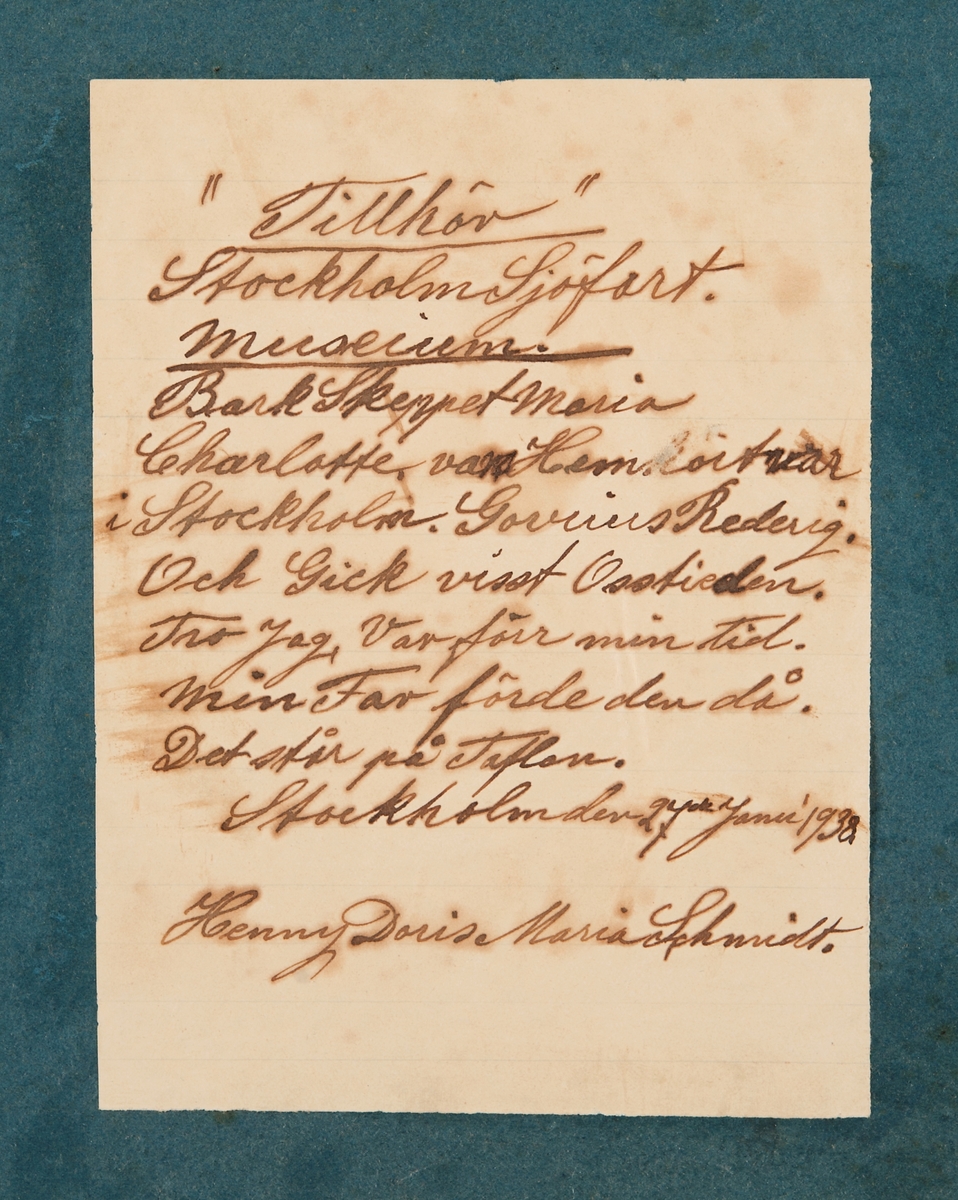 " Tillhör "
Stockholm Sjöfart.
Museium.
Bark Skeppet Maria
Charlotte. van Hemkoit var
i Stockholm. Govenius Rederig.
Och Gick visst Osstieden.
Tro Jag, Var förr min tid.
Min Far förde den då.
Det står på Taflan.
Stockholm den 27de Janu 1938
Henny Doris Maria Schmidt.